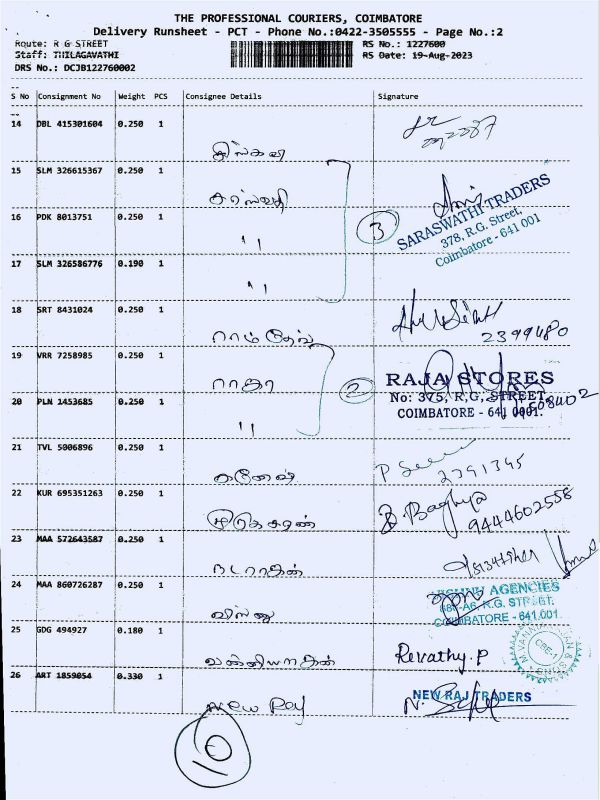 THE PROFESSIONAL COURIERS, COIMBATORE
Delivery Runsheet - PCT - Phone No.:0422-3505555 - Page No.:2
Route: R G STREET
RS No.: 1227600
Staff: THILAGAVATHI
RS Date: 19-Aug-2023
DRS No.: DCJB122760002
S No Consignment No Weight PCS Consignee Details Signature
14 DBL 415301604 0.250 1
15 SLM 326615367 0.250 1
சரஸ்வதி
SARASWATHI TRADERS
378, R.G. Street,
Coimbatore - 641 001
16 PDK 8013751 0.250 1
" 3
17 SLM 326586776 0.190 1
"
18 SRT 8431024 0.250 1
ராம்தேவ் 2399480
19 VRR 7258985 0.250 1
ராஜா
RAJA STORES
No: 375, R,G, STREET,
COIMBATORE - 641 0001.
20 PLN 1453685 0.250 1
" 2
21 TVL 5006896 0.250 1
கணேஷ் 2791345
22 KUR 695351263 0.250 1
B. Bagya
9444602558
23 MAA 572643587 0.250 1
நடராஜன்
24 MAA 860726287 0.250 1
விஷ்ணு
AGENCIES
R.G. STREET,
COIMBATORE - 641.001.
25 GDG 494927 0.180 1
Revathy.P
26 ART 1859054 0.330 1
New Raj
NEW RAJ TRADERS
10